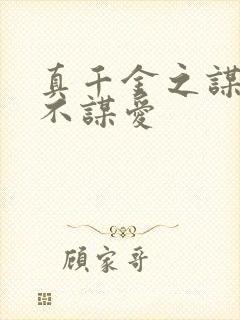 真千金之謀
不謀愛
顧家哥